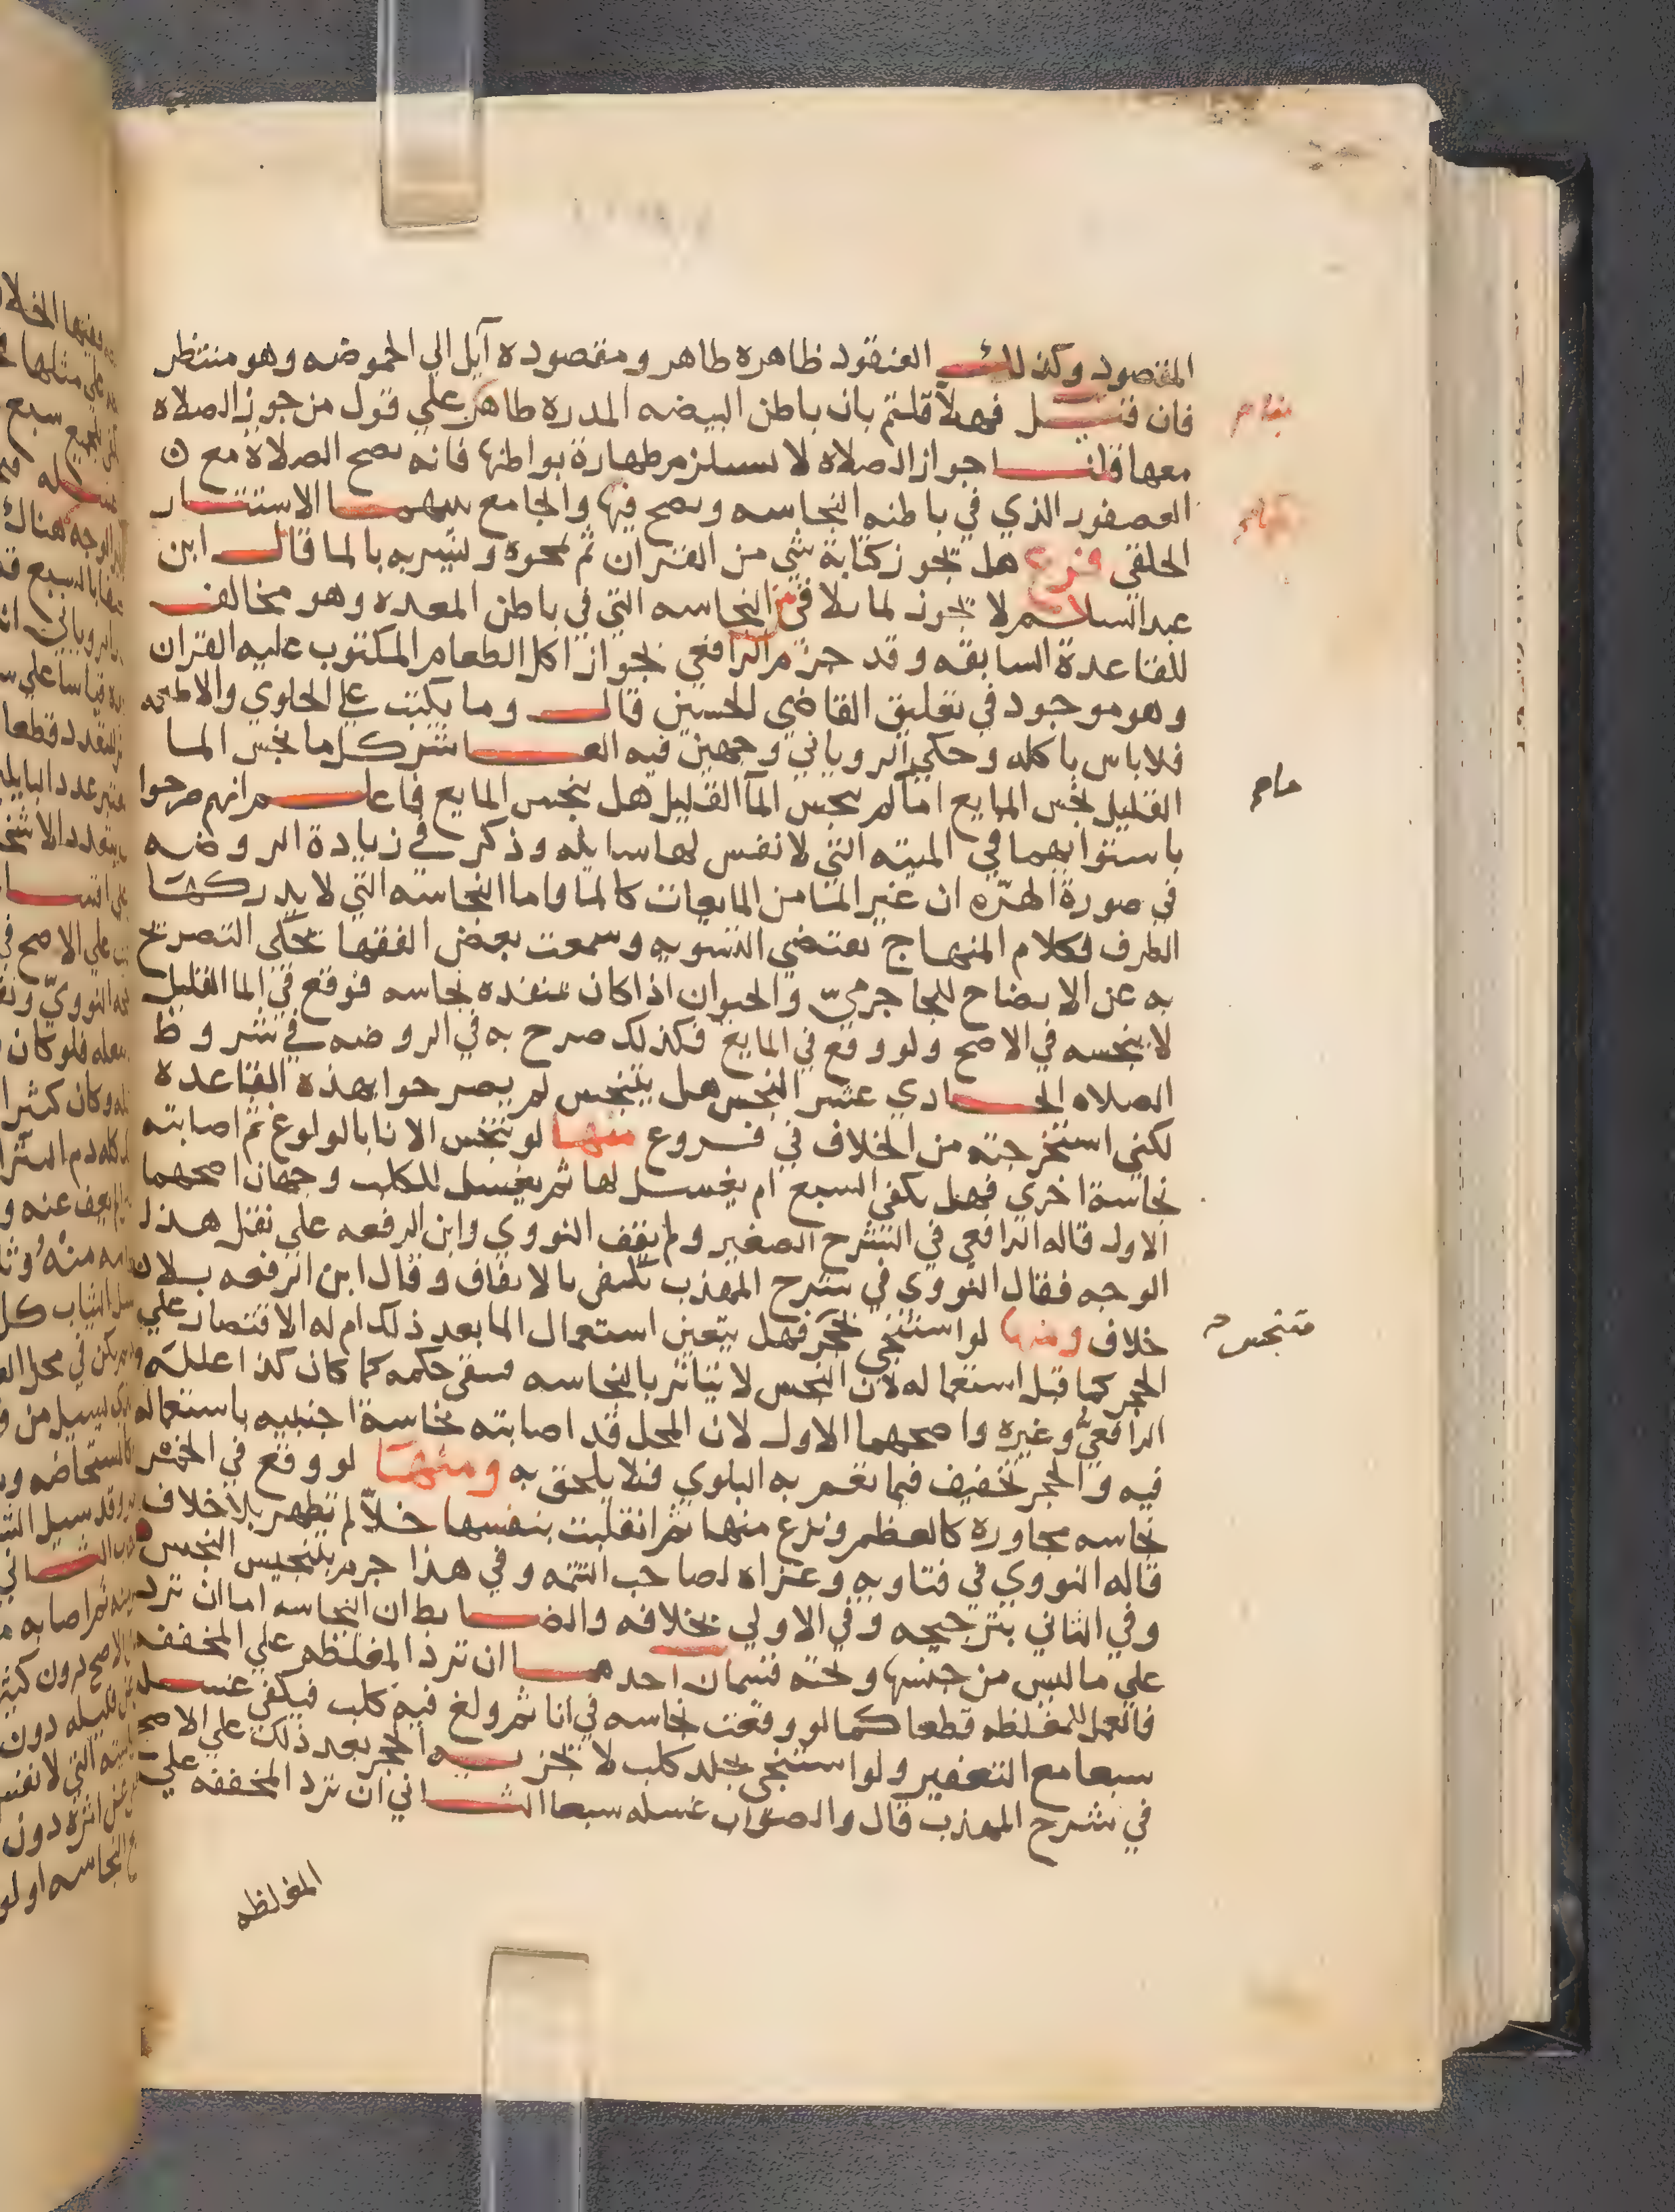 المقصود وكذلك العنقود ظاهره طاهر ومقصوده آيل الي الحموضه وهو منتظر
فان قيل فهلا قلتم بان باطن البيضه المدره طاهر علي قول من جوز الصلاه
معها قلنا جواز الصلاه لا يستلزم طهارة بواطنها فانه يصح الصلاة مع
العصفور الذي في باطنه النجاسه ويصح فيها والجامع بينهما الاستتار
الخلقي فرع هل تجوز كتابة شي من القران ثم يمحوه ويشربه بالما قال ابن
عبد السلام لا يجوز لما يلاقي من النجاسه التي في باطن المعده وهو مخالف
للقاعدة السابقه وقد جزم الرافعي بجواز اكل الطعام المكتوب عليه القران
وهو موجود في تعليق القاضي الحسين قال وما يكتب علي الحلوي والاطعمه
فلا باس باكله وحكي الروياني وجهين فيه العاشر كل ما نجس الما
القليل نجس المايع اما لم ينجس الما القليل هل ينجس المايع فاعلم انهم صرحوا
باستوايهما في الميته التي لا نفس لها سايله وذكر في زيادة الروضه
في صورة الهره ان غير الما من المايعات كالما واما النجاسه التي لا يدركها
الطرف فكلام المنهاج يقتضي التسويه وسمعت بعض الفقها يحكي التصريح
به عن الايضاح للجاجرمي والحيوان اذا كان بمنفذه نجاسه فوقع في الما القليل
لا ينجسه في الاصح ولو وقع في المايع فكذلك صرح به في الروضه في شروط
الصلاه الحادي عشر النجس هل يتنجس لم يصرحوا بهذه القاعده
لكني استخرجته من الخلاف في فروع منها لو تنجس الانا بالولوغ ثم اصابته
نجاسة اخري فهل يكفي السبع ام يغسل لها ثم يغسل للكلب وجهان اصحهما
الاول قاله الرافعي في الشرح الصغير ولم يقف النووي وابن الرفعه علي نقل هذا
الوجه فقال النووي في شرح المهذب يكفي بالاتفاق وقال ابن الرفعه بلا
خلاف ومنها لو استنجي بحجر فهل يتعين استعمال الما بعد ذلك ام له الاقتصار علي
الحجر كما قبل استعماله لان النجس لا يتاثر بالنجاسه فبقي حكمه كما كان كذا علله
الرافعي وغيره واصحهما الاول لان المحل قد اصابته نجاسة اجنبيه باستعماله
فيه والحجر تخفيف فيما تعم به البلوي فلا يلحق به ومنها لو وقع في الخمر
نجاسه مجاورة كالعظم ونزع منها ثم انقلبت بنفسها خلا لم تطهر بلا خلاف
قاله النووي في فتاويه وعزاه لصاحب التتمه وفي هذا جزم بتنجيس النجس
وفي الثاني بترجيحه وفي الاولي بخلافه والضابط ان النجاسه اما ان ترد
علي ما ليس من جنسها وتحته قسمان احدهما ان ترد المغلظه علي المخففه
فالعمل للمغلظه قطعا كما لو وقعت نجاسه في انا ثم ولغ فيه كلب فيكفي غسله
سبعا مع التعفير ولو استنجي بجلد كلب لا يجزيه الحجر بعد ذلك علي الاصح
في شرح المهذب قال والصواب غسله سبعا الثاني ان ترد المخففه علي
المغلظه
متنجس